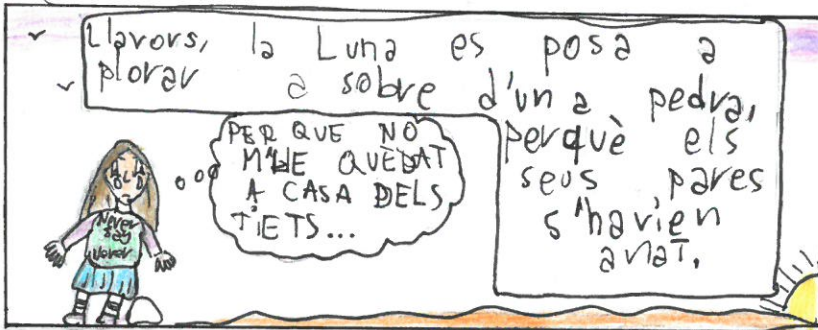 Llavors, la Luna es posa a
plorar a sobre d'un a pedra,
perquè els
seus pares
s'havien
anat.
PER QUE NO
M'HE QUEDAT
A CASA DELS
TIETS...
Never
Say
Never